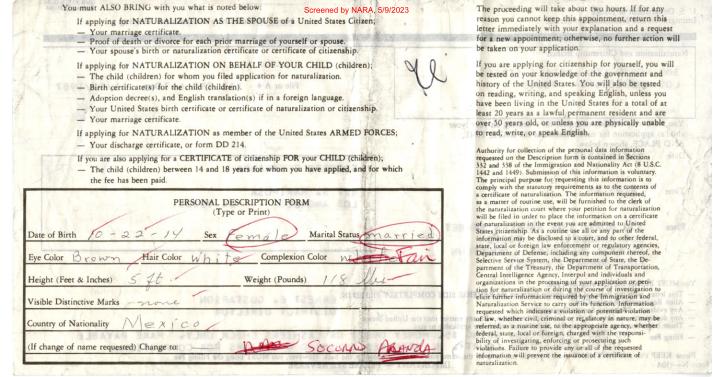 You must ALSO BRING with you what is noted below:
Screened by NARA, 5/9/2023
If applying for NATURALIZATION AS THE SPOUSE of a United States Citizen;
— Your marriage certificate.
— Proof of death or divorce for each prior marriage of yourself or spouse.
— Your spouse's birth or naturalization certificate or certificate of citizenship.
If applying for NATURALIZATION ON BEHALF OF YOUR CHILD (children);
— The child (children) for whom you filed application for naturalization.
— Birth certificate(s) for the child (children).
— Adoption decree(s), and English translation(s) if in a foreign language.
— Your United States birth certificate or certificate of naturalization or citizenship.
— Your marriage certificate.
If applying for NATURALIZATION as member of the United States ARMED FORCES;
— Your discharge certificate, or form DD 214.
If you are also applying for a CERTIFICATE of citizenship FOR your CHILD (children);
— The child (children) between 14 and 18 years for whom you have applied, and for which
the fee has been paid.
PERSONAL DESCRIPTION FORM
(Type or Print)
Date of Birth 10-22-14 Sex female Marital Status married
Eye Color Brown Hair Color White Complexion Color Fair
Height (Feet & Inches) 5 ft. Weight (Pounds) 118 lbs
Visible Distinctive Marks none
Country of Nationality Mexico
(If change of name requested) Change to: SOCORRO ARANDA
The proceeding will take about two hours. If for any
reason you cannot keep this appointment, return this
letter immediately with your explanation and a request
for a new appointment; otherwise, no further action will
be taken on your application.
If you are applying for citizenship for yourself, you will
be tested on your knowledge of the government and
history of the United States. You will also be tested
on reading, writing, and speaking English, unless you
have been living in the United States for a total of at
least 20 years as a lawful permanent resident and are
over 50 years old, or unless you are physically unable
to read, write, or speak English.
Authority for collection of the personal data information
requested on the Description form is contained in Sections
332 and 338 of the Immigration and Nationality Act (8 U.S.C.
1442 and 1449). Submission of this information is voluntary.
The principal purpose for requesting this information is to
comply with the statutory requirements as to the contents of
a certificate of naturalization. The information requested,
as a matter of routine use, will be furnished to the clerk of
the naturalization court where your petition for naturalization
will be filed in order to place the information on a certificate
of naturalization in the event you are admitted to United
States citizenship. As a routine use all or any part of the
information may be disclosed to a court, and to other federal,
state, local or foreign law enforcement or regulatory agencies,
Department of Defense, including any component thereof, the
Selective Service System, the Department of State, the De-
partment of the Treasury, the Department of Transportation,
Central Intelligence Agency, Interpol and individuals and
organizations in the processing of your application or peti-
tion for naturalization or during the course of investigation to
elicit further information required by the Immigration and
Naturalization Service to carry out its function. Information
requested which indicates a violation or potential violation
of law, whether civil, criminal or regulatory in nature, may be
referred, as a routine use, to the appropriate agency, whether
federal, state, local or foreign, charged with the responsi-
bility of investigating, enforcing or prosecuting such
violations. Failure to provide any or all of the requested
information will prevent the issuance of a certificate of
naturalization.